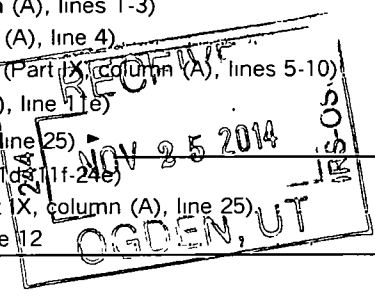 (A), lines 1-3)
(A), line 4)
(Part IX, column (A), lines 5-10)
), line 11e)
line 25) ►
11f-24e)
IX, column (A), line 25)
12
RECEIVED
NOV 25 2014
IRS-OSC
OGDEN, UT